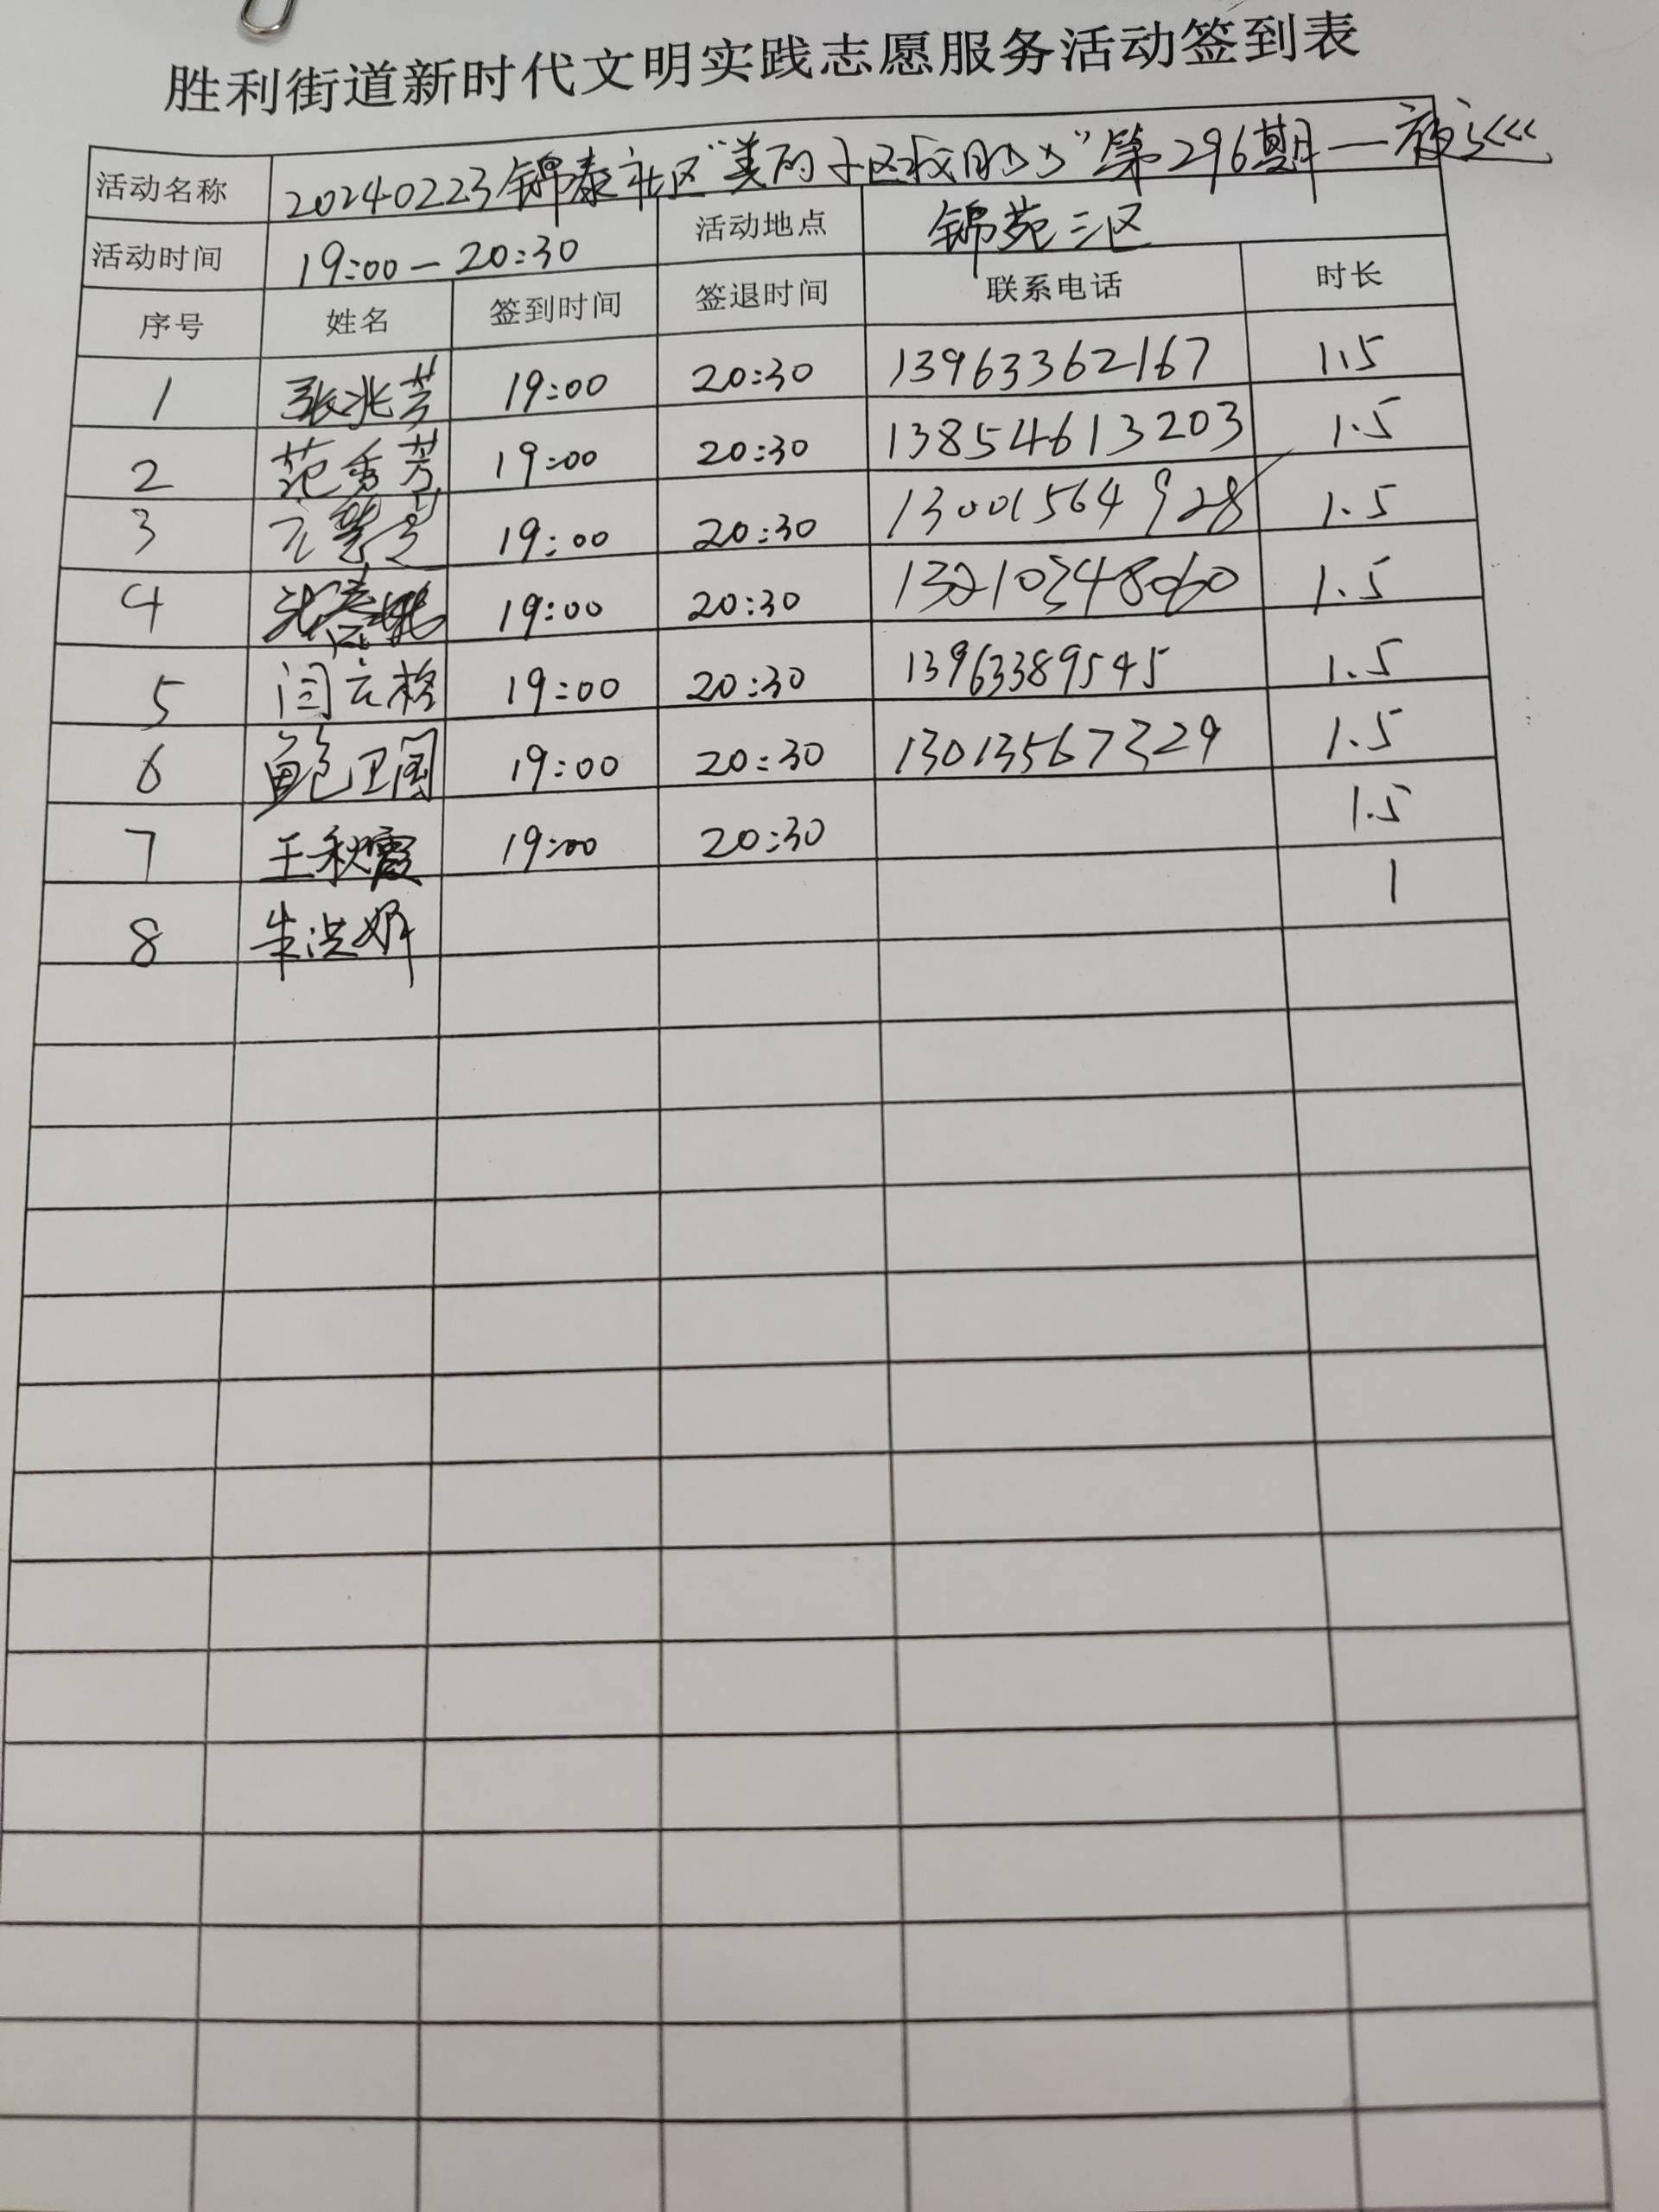 胜利街道新时代文明实践志愿服务活动签到表
活动名称 20240223锦泰社区"美丽小区我助力"第296期—夜巡
活动时间 19:00—20:30 活动地点 锦苑三区
序号 姓名 签到时间 签退时间 联系电话 时长
1 张兆芳 19:00 20:30 13963362167 1.5
2 范秀芳 19:00 20:30 13854613203 1.5
3 19:00 20:30 13001564928 1.5
4 19:00 20:30 1.5
5 闫云格 19:00 20:30 13963389545 1.5
6 鲍卫国 19:00 20:30 13013567329 1.5
7 王秋霞 19:00 20:30 1.5
8 朱洪妍 1